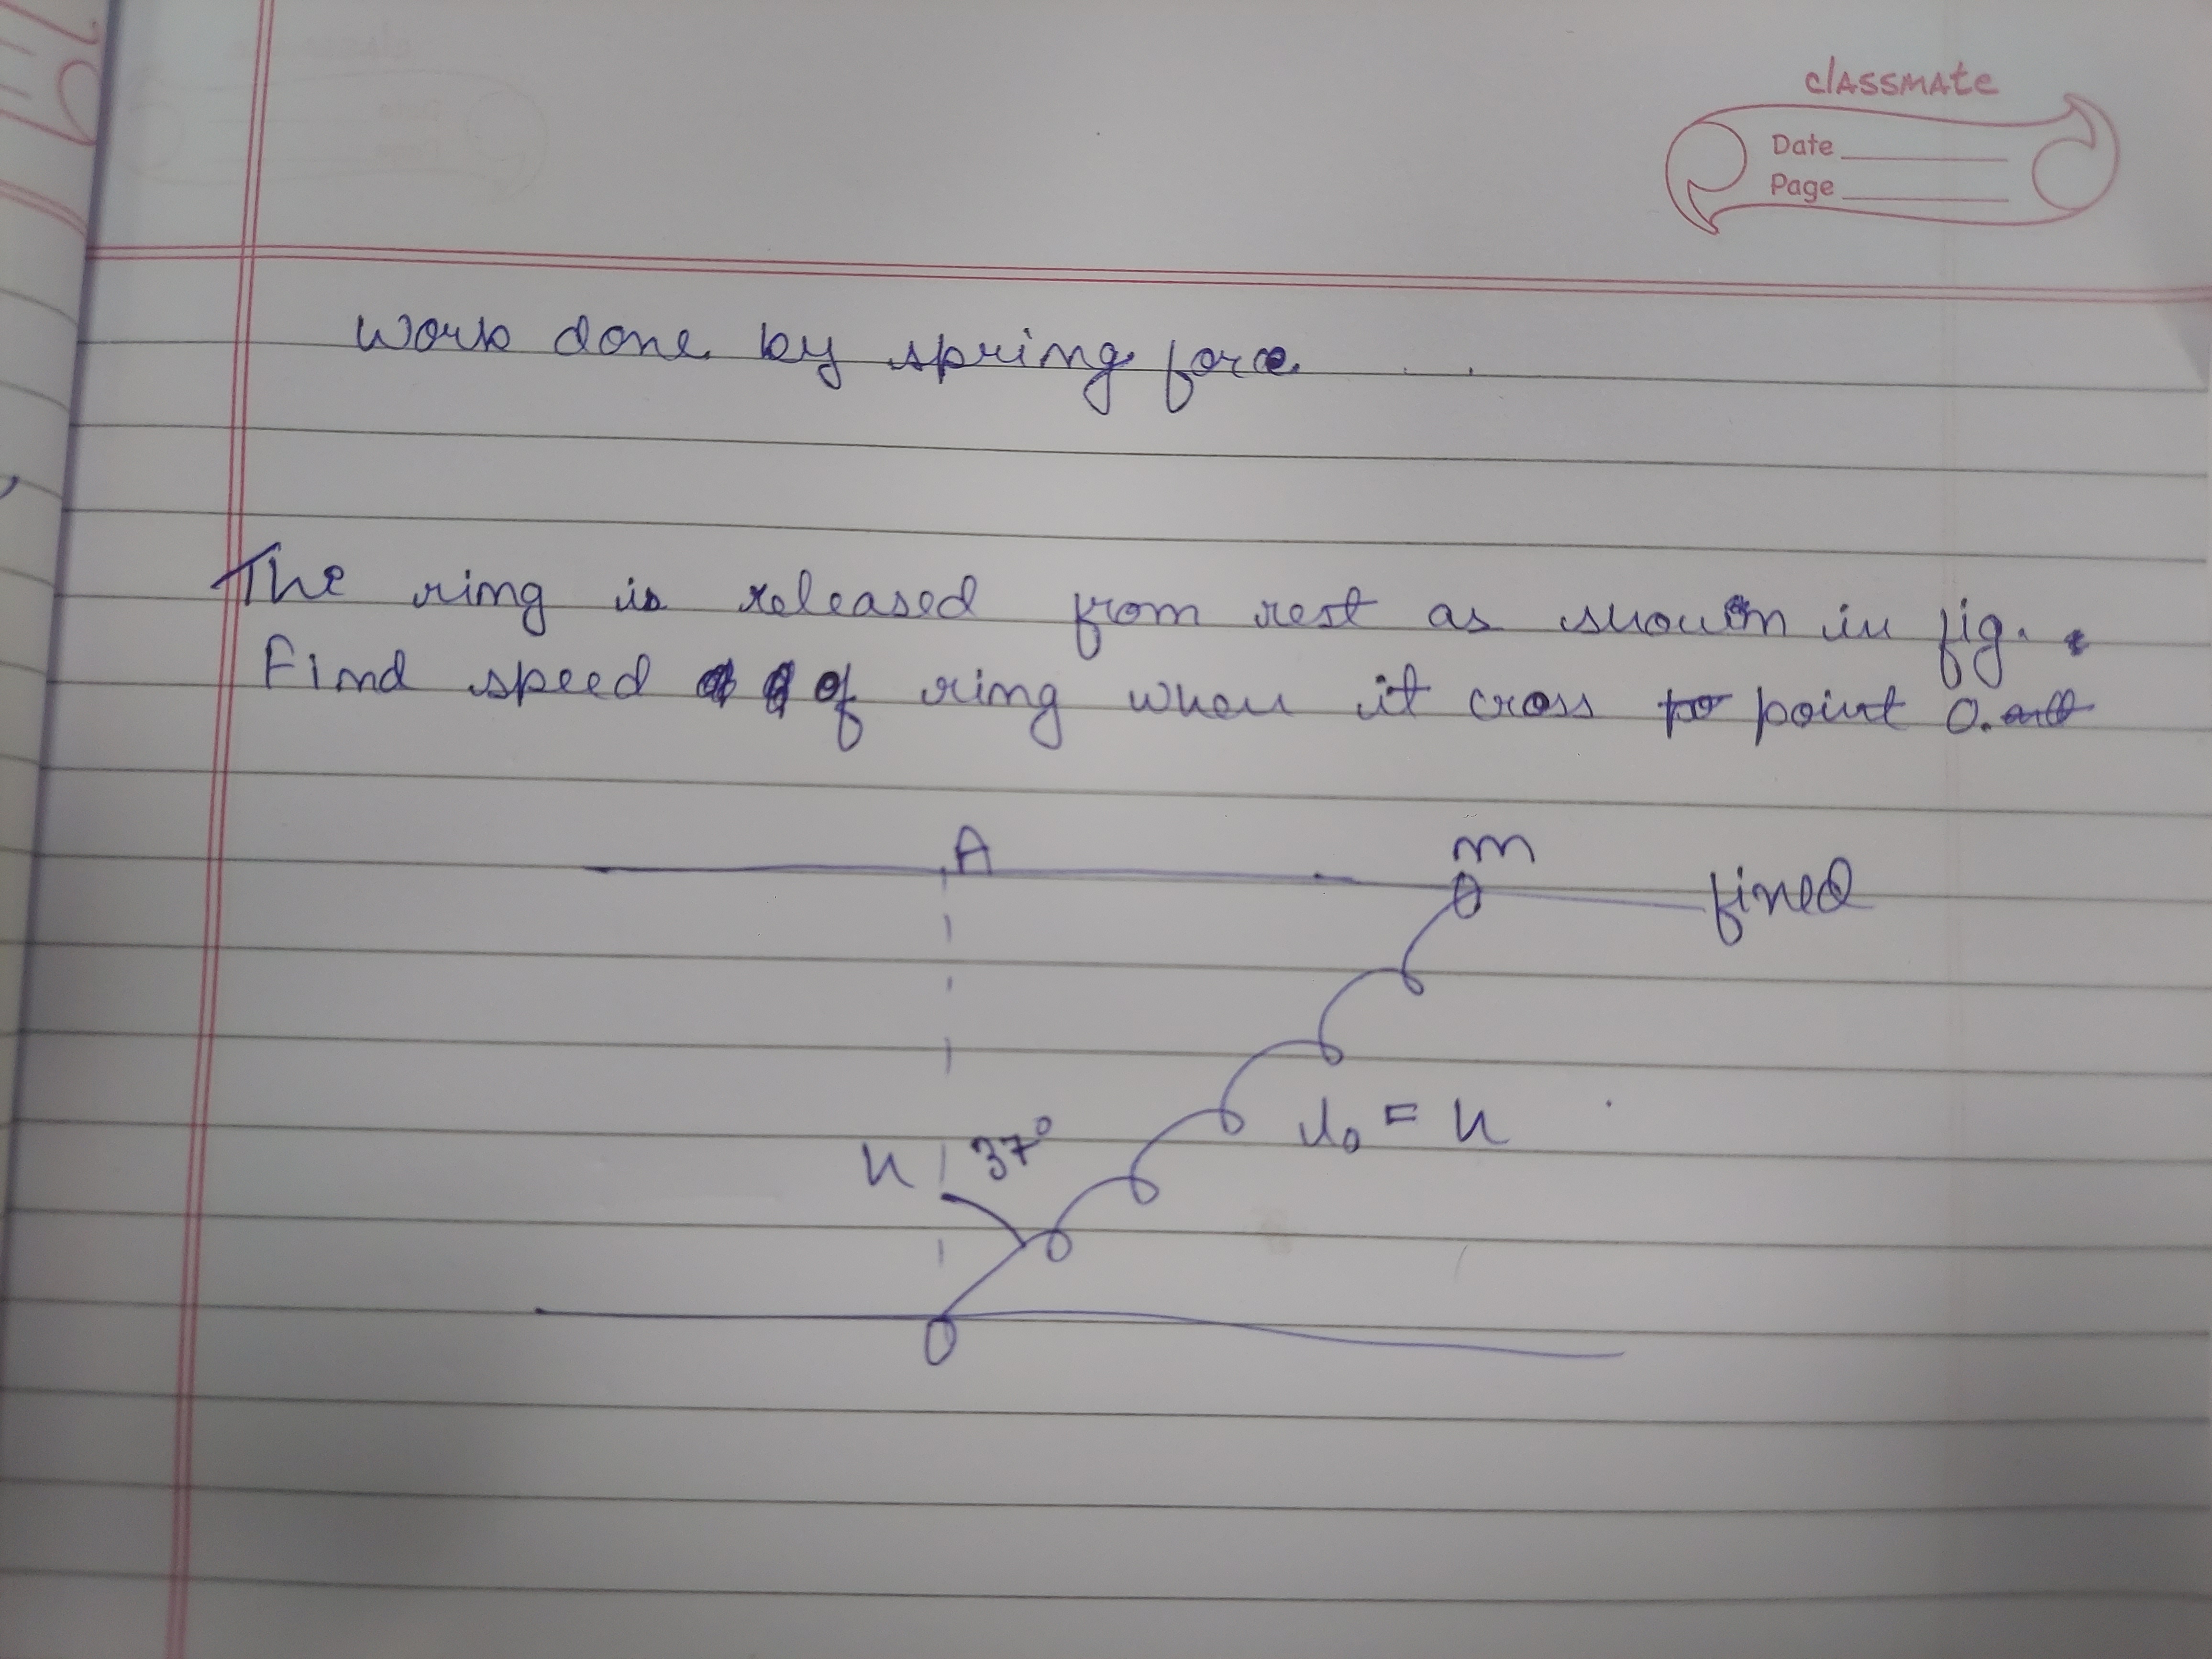 classmate
Date
Page
Work done by spring force.
The ring is released from rest as shown in fig.
Find speed of ring when it cross point O.
A
m
fined
37°
h
l₀ = h
O